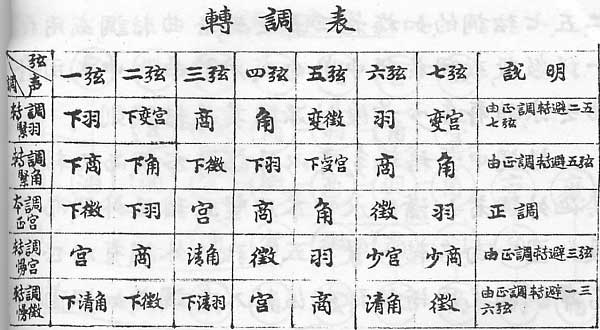 轉調表
弦 声 調 一弦 二弦 三弦 四弦 五弦 六弦 七弦 說明
緊羽 調 下羽 下変宮 商 角 変徴 羽 変宮 由正調轉避二五七弦
緊角 調 下商 下角 下徴 下羽 下変宮 商 角 由正調轉避五弦
本調正宮 下徴 下羽 宮 商 角 徴 羽 正調
調宮 宮 商 清角 徴 羽 少宮 少商 由正調轉避三弦
調徴 下清角 下徴 下清羽 宮 商 清角 徴 由正調轉避一三六弦